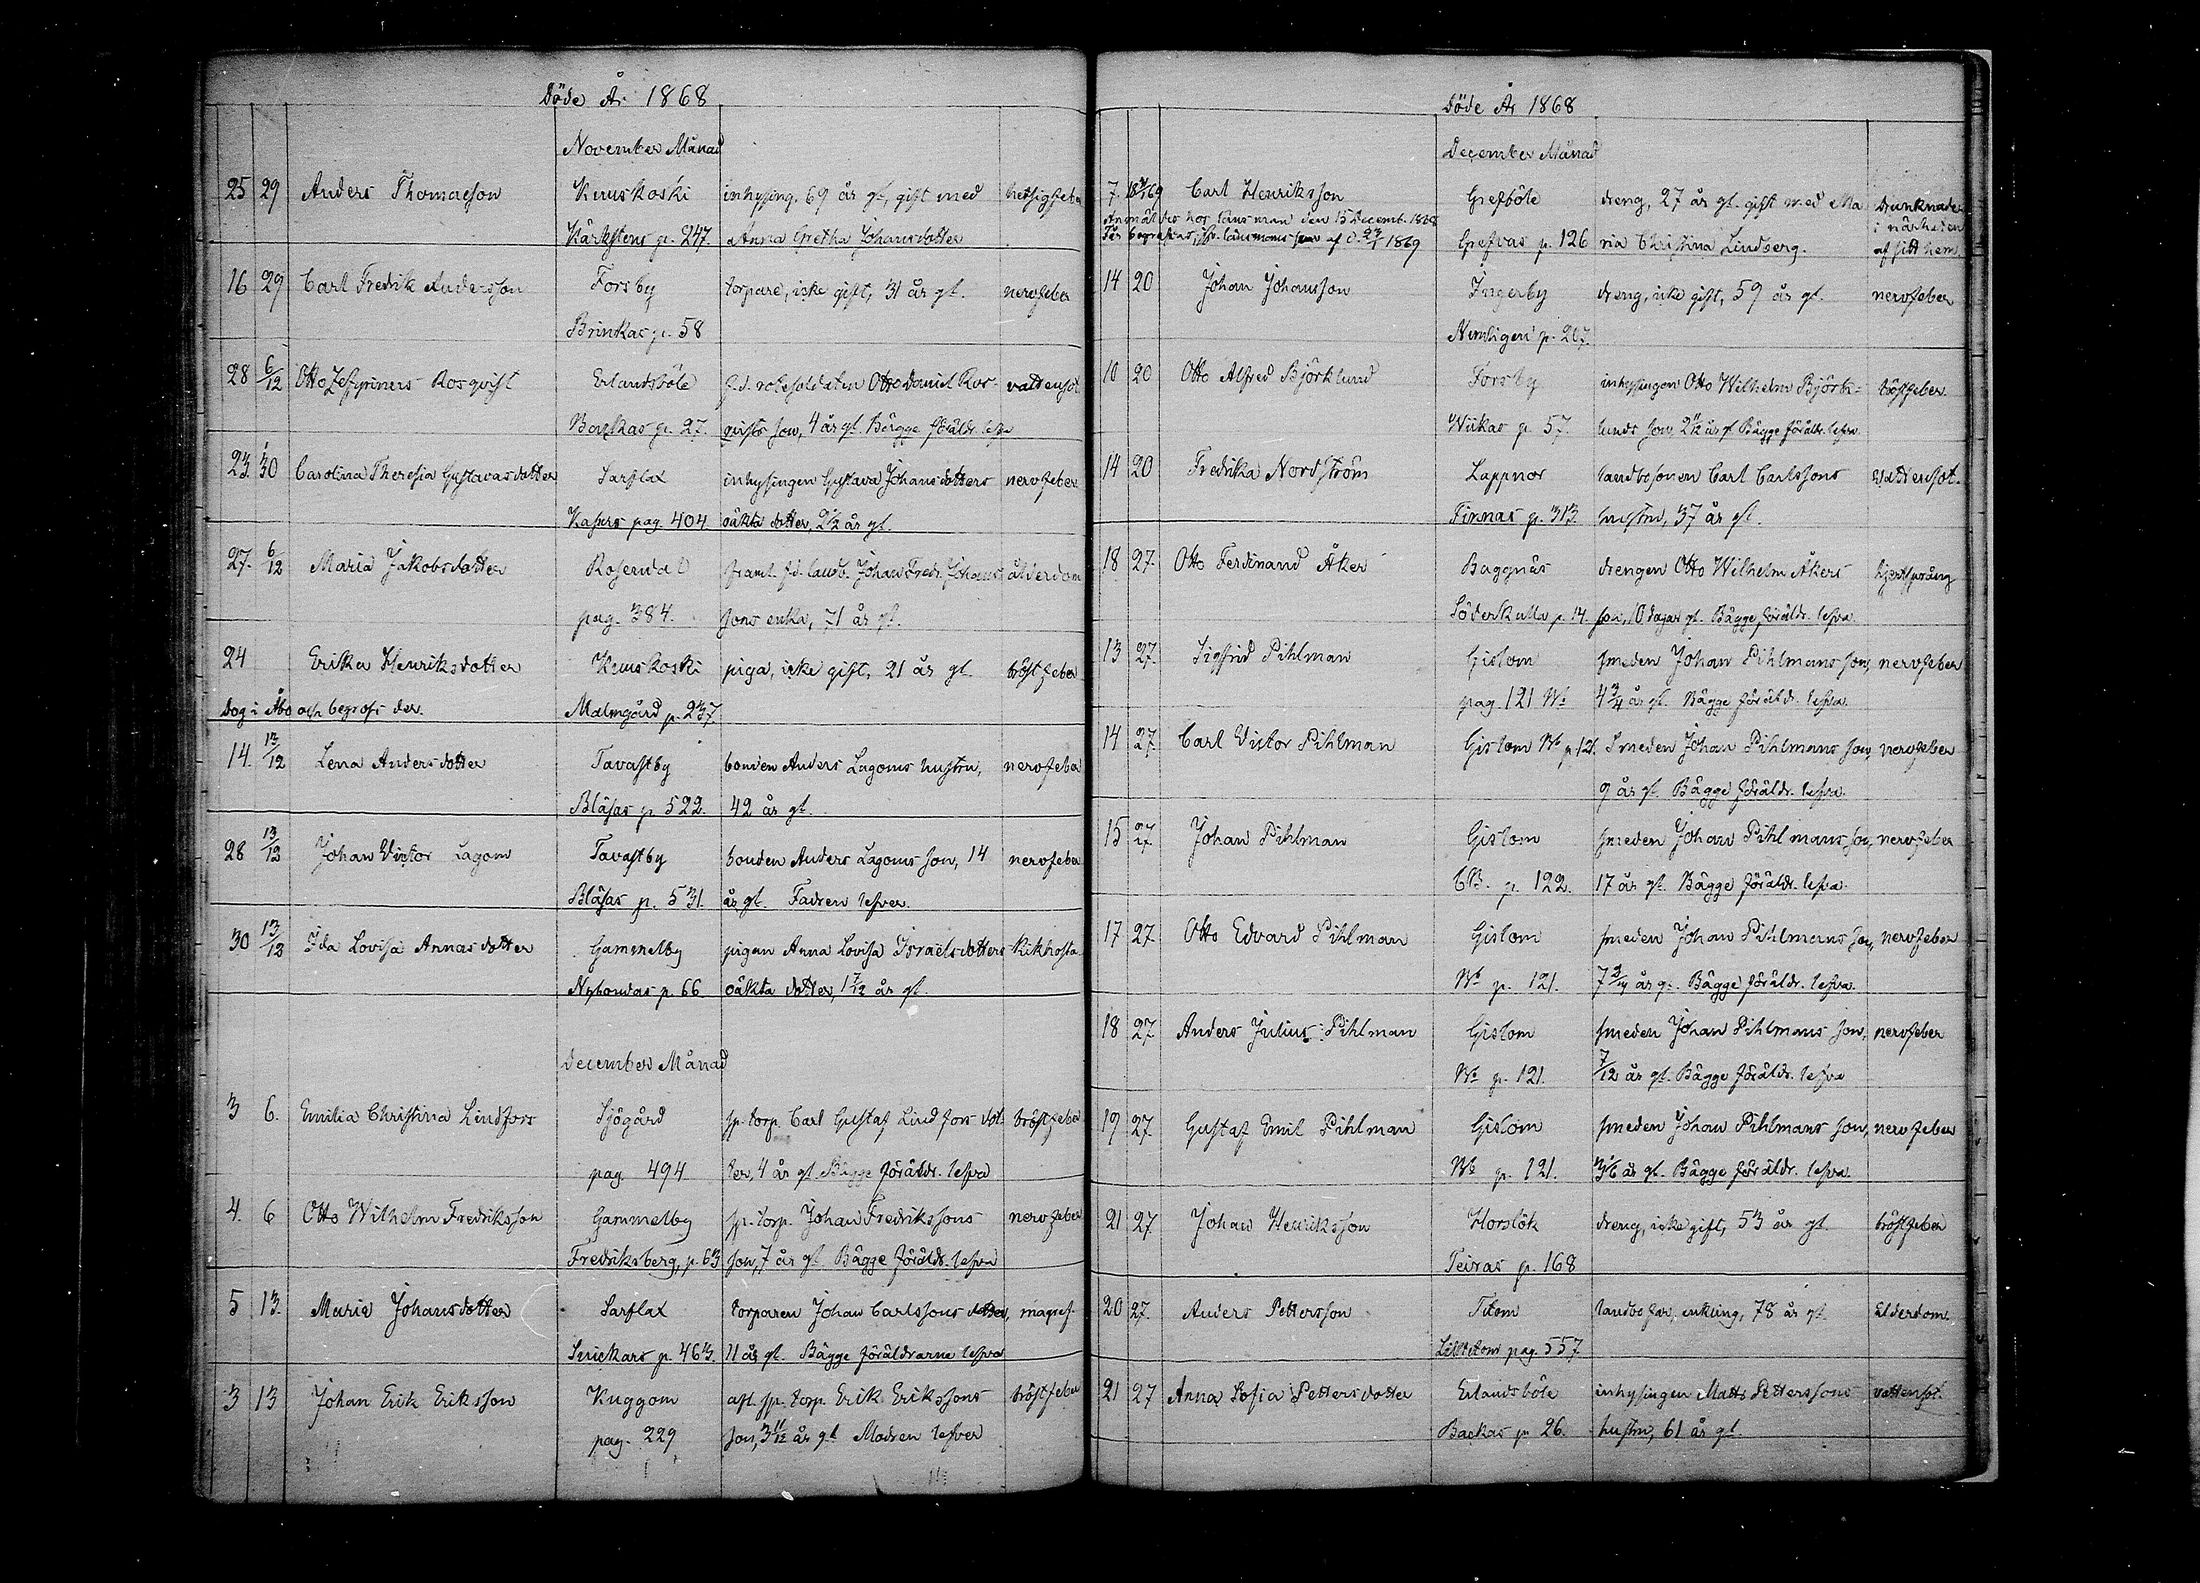 Döde År 1868
November Månad
25 29 Anders Thomasson Kuuskoski inhysing, 69 år gl, gift med hetsigfeber
Kärkstens p. 247. Anna Gretha Johansdotter
16 29 Carl Fredrik Andersson Forsby torpare, icke gift, 31 år gl. nervfeber
Brinkas p. 58
28 6/12 Otto Zefyriners Rosqvist Erlandsböle f.d. rotesoldaten Otto Daniel Ros- vattensot
Backas p. 27. qvists son, 4 år gl. Bägge föräldr. lefva
23. 30 Carolina Theresia Gustavasdotter Sarflax inhysingen Gustava Johansdotters nervfeber
Kasurs pag. 404. oäkta dotter, 2 1/2 år gl.
27. 6/12 Maria Jakobsdotter Rosendal framl. f.d. landb. Johan Fredr. Johans- ålderdom
pag. 384. sons enka, 71 år gl.
24 Erika Henriksdotter Kuuskoski piga, icke gift, 21 år gl bröstfeber
Dog i Åbo och begrofs der. Malmgård p. 237
14. 13/12 Lena Andersdotter Tavastby bonden Anders Lagoms hustru, nervfeber
Bläsas p. 522. 42 år gl.
28 13/12 Johan Victor Lagom Tavastby bonden Anders Lagoms son, 14 nervfeber
Bläsas p. 531. år gl. Fadren lefver.
30 13/12 Ida Lovisa Annasdotter Gammelby pigan Anna Lovisa Israelsdotters kikhosta
Nybondas p. 66. oäkta dotter, 1 7/12 år gl.
December Månad
3 6. Emilia Christina Lindfors Sjögård sp. torp. Carl Gustaf Lindfors dot- bröstfeber
pag. 494 ter, 4 år gl. Bägge föräldr. lefva
4. 6 Otto Wilhelm Fredriksson Gammelby sp. torp. Johan Fredrikssons nervfeber
Fredriksberg, p. 63 son, 7 år gl. Bägge föräldr. lefva
5 13. Maria Johansdotter Sarflax torparen Johan Carlssons dotter, magref
Snickars p. 463. 11 år gl. Bägge föräldrarne lefva
3 13 Johan Erik Eriksson Kuggom afl. sp. torp. Erik Erikssons bröstfeber
pag. 229 son, 3 11/12 år gl Modren lefver
Döde År 1868
December Månad
7 Carl Henriksson Grefböle dreng, 27 år gl. gift med Ma- Drunknade
Anmäldes hos länsman den 15 Decemb. 1868. i närheten
Får begrafvas, länsmans af d. 1869 Grefvas p. 126 ria Christina Lindberg. af sitt hem.
14 20 Johan Johansson Ingerby dreng, icke gift, 59 år gl. nervfeber
p. 207.
10 20 Otto Alfred Björklund Forsby inhysingen Otto Wilhelm Björk- bröstfeber.
Wiikas p. 57. lunds son, år gl Bägge föräldr. lefva.
14 20 Fredrika Nordström Lappnor landbosonen Carl Carlssons Vattensot.
Finnas p. 313. hustru, 37 år gl.
18 27. Otto Ferdinand Åker Baggnäs drengen Otto Wilhelm Åkers hjertsprång
Söderkulla p. 14. son, 10 dagar gl. Bägge föräldr. lefva
13 27. Sigfrid Pihlman Gislom smeden Johan Pihlmans son, nervfeber
pag. 121 Wb 4 3/4 år gl. Bägge föräldr. lefva.
14 27. Carl Victor Pihlman Gislom Wb p. 121. Smeden Johan Pihlmans son, nervfeber
9 år gl. Bägge föräldr. lefva.
15 27 Johan Pihlman Gislom smeden Johan Pihlmans son, nervfeber
CB. p. 122. 17 år gl. Bägge föräldr. lefva.
17 27. Otto Edvard Pihlman Gislom smeden Johan Pihlmans son, nervfeber
Wb p. 121. 7 3/4 år g. Bägge föräldr. lefva.
18 27. Anders Julius Pihlman Gislom smeden Johan Pihlmans son, nervfeber
Wb p. 121. 7/12 år gl. Bägge föräldr. lefva
19 27. Gustaf Emil Pihlman Gislom smeden Johan Pihlmans son, nervfeber
Wb p. 121. 3 1/6 år gl. Bägge föräldr. lefva.
21 27. Johan Henriksson Horslök dreng, icke gift, 53 år gl. bröstfeber
Teiras p. 168
20 27. Anders Pettersson Tetom landbofar, enkling, 78 år gl. Elderdom.
Lilltetom pag. 557
21 27 Anna Sofia Pettersdotter Erlandsböle inhysingen Matts Petterssons vattensot.
Backas p. 26. hustru, 61 år gl.